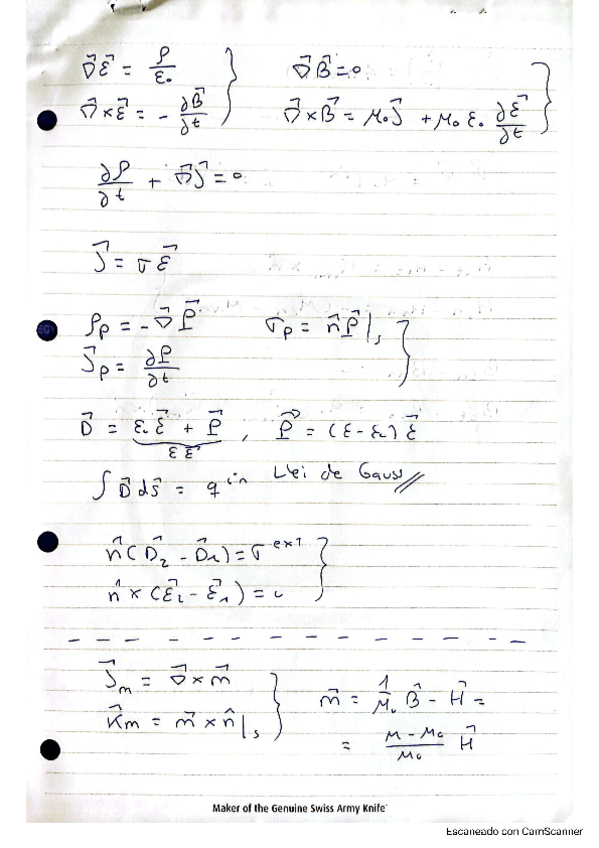 ∇⃗ℰ⃗ = ρ/ε₀    ∇⃗B⃗ = 0
∇⃗×ℰ⃗ = - ∂B⃗/∂t    ∇⃗×B⃗ = μ₀J⃗ + μ₀ε₀ ∂ℰ⃗/∂t
∂ρ/∂t + ∇⃗J⃗ = 0
J⃗ = σℰ⃗
ρ_p = -∇⃗P⃗    σ_p = n̂P⃗|_s
J⃗_p = ∂P⃗/∂t
D⃗ = ε₀ℰ⃗ + P⃗ , P⃗ = (ε-ε₀)ℰ⃗
εℰ⃗
∫D⃗dS⃗ = q^in Llei de Gauss
n̂(D⃗₂ - D⃗₁) = σ^ext
n̂×(ℰ⃗₂ - ℰ⃗₁) = 0
J⃗_m = ∇⃗×m⃗    m⃗ = 1/μ₀ B⃗ - H⃗ =
K⃗_m = m⃗×n̂|_s    = (μ-μ₀)/μ₀ H⃗
Maker of the Genuine Swiss Army Knife
Escaneado con CamScanner